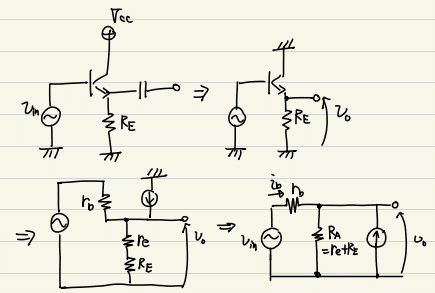 Vcc
Vin
RE
⇒
RE
Vo
⇒
rb
re
RE
Vo
⇒
ib
rb
Vin
RA
=re+RE
Vo